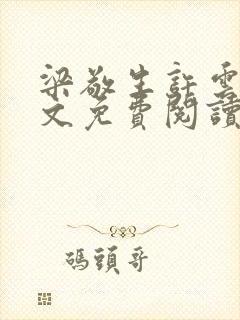 梁敬生許雲
文免費閱讀
碼頭哥